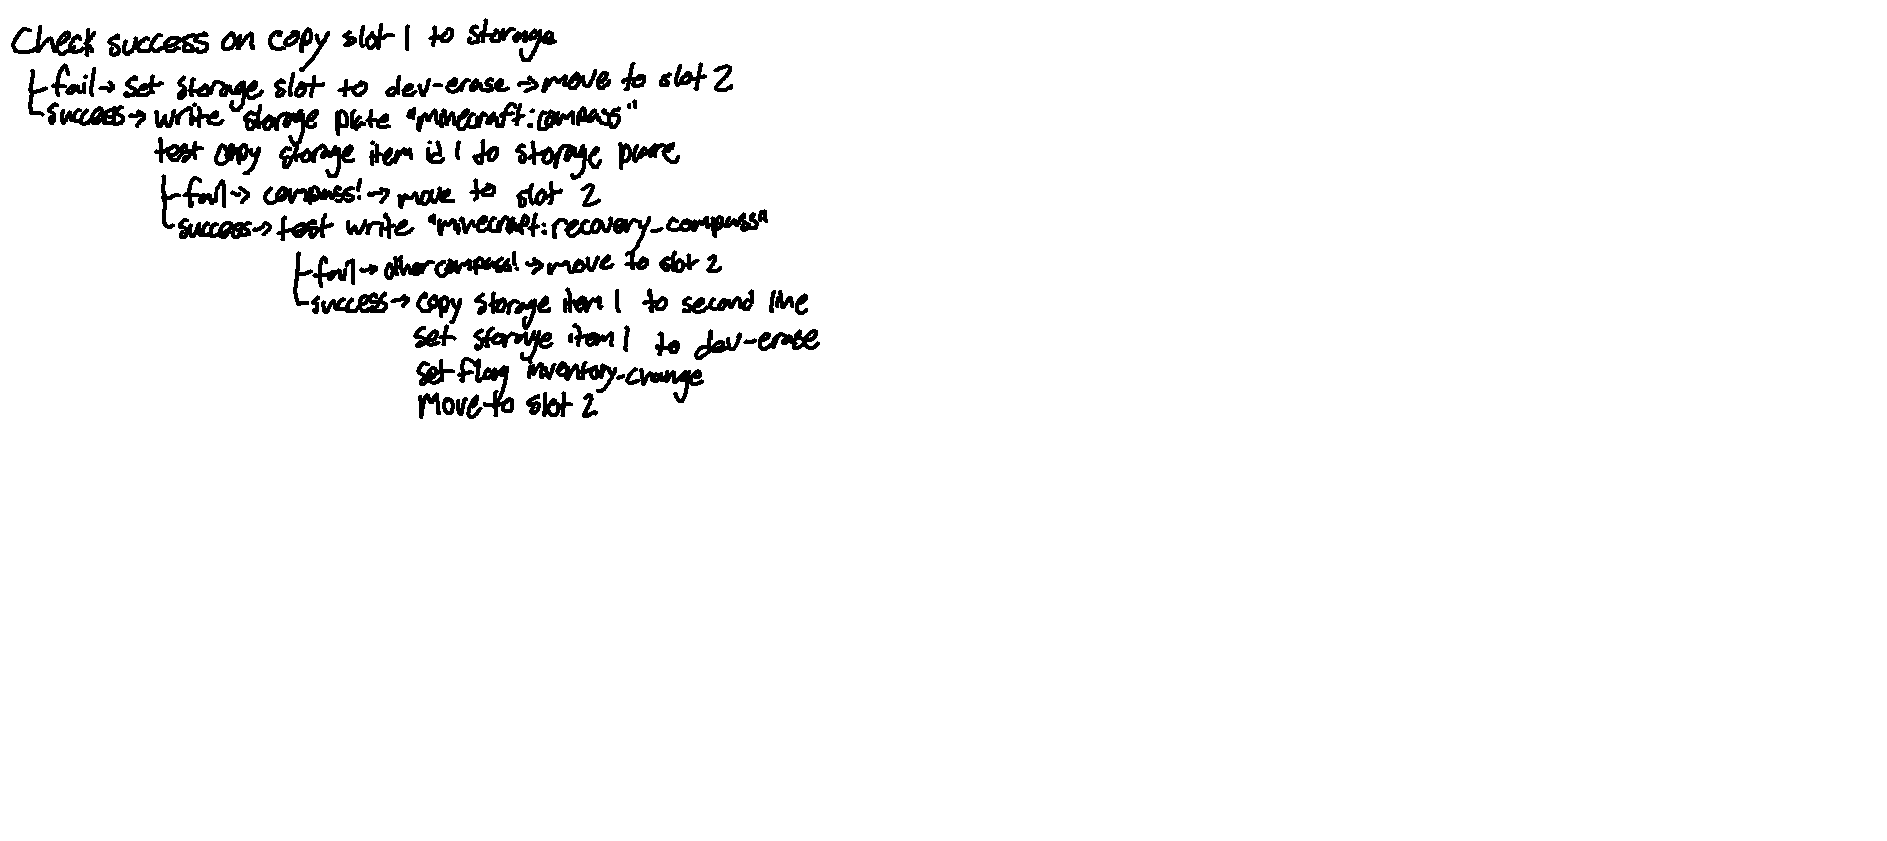 Check success on copy slot 1 to storage
fail→ set storage slot to dev-erase → move to slot 2
success→ write storage plate "minecraft:compass"
test copy storage item id 1 to storage place
fail→ compass! → move to slot 2
success→ test write "minecraft:recovery_compass"
fail→ other compass! → move to slot 2
success→ copy storage item 1 to second line
set storage item 1 to dev-erase
set flag inventory-change
Move to slot 2